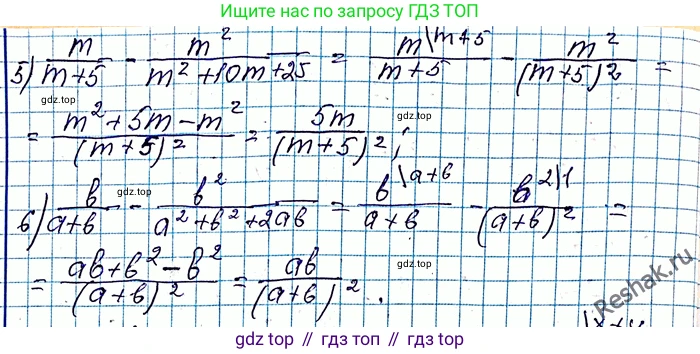 Ищите нас по запросу
ГДЗ ТОП
5) m/(m+5) - m²/(m²+10m+25) = m\m+5/(m+5) - m²/(m+5)² =
gdz.top
gdz.top
= (m²+5m-m²)/(m+5)² = 5m/(m+5)²;
gdz.top
6) b/(a+b) - b²/(a²+b²+2ab) = b\a+b/(a+b) - b²\1/(a+b)² =
gdz.top
= (ab+b²-b²)/(a+b)² = ab/(a+b)².
gdz.top
Reshak.ru
gdz top // гдз топ // gdz top